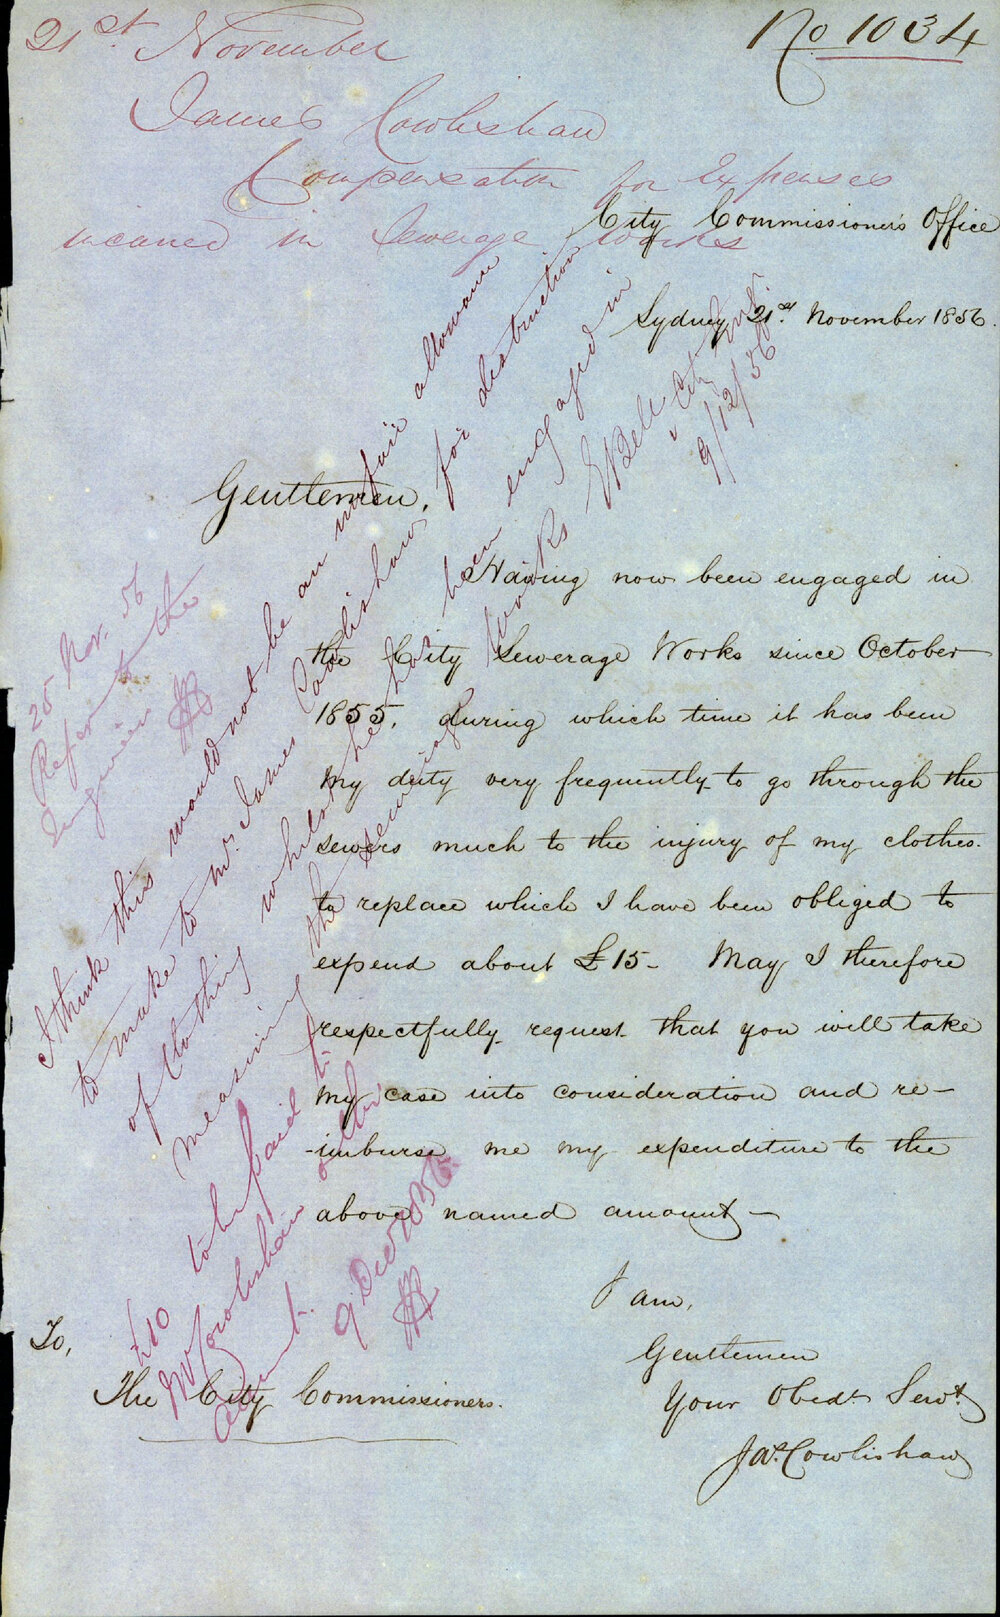 21st November
No 1034
James Cowlishaw
Compensation for Expenses
incurred in Sewerage Works
City Commissioner's Office
Sydney 21st November 1856.
Gentlemen,
Having now been engaged in
the City Sewerage Works since October
1855, during which time it has been
my duty very frequently to go through the
sewers much to the injury of my clothes.
to replace which I have been obliged to
expend about £15 - May I therefore
respectfully request that you will take
my case into consideration and re-
-imburse me my expenditure to the
above named amount -
I am,
Gentlemen
Your Obedt Servt
Jas. Cowlishaw
To,
The City Commissioners.
25 Nov. 56
Refer to the
Engineer
I think this would not be an unfair allowance
to make to Mr James Cowlishaw for destruction
of Clothing whilst he has been engaged in
measuring the sewerage works
EBell City Engr
9/12/56
£10 to be paid to
Mr Cowlishaw on this
account.
9 Dec 1856